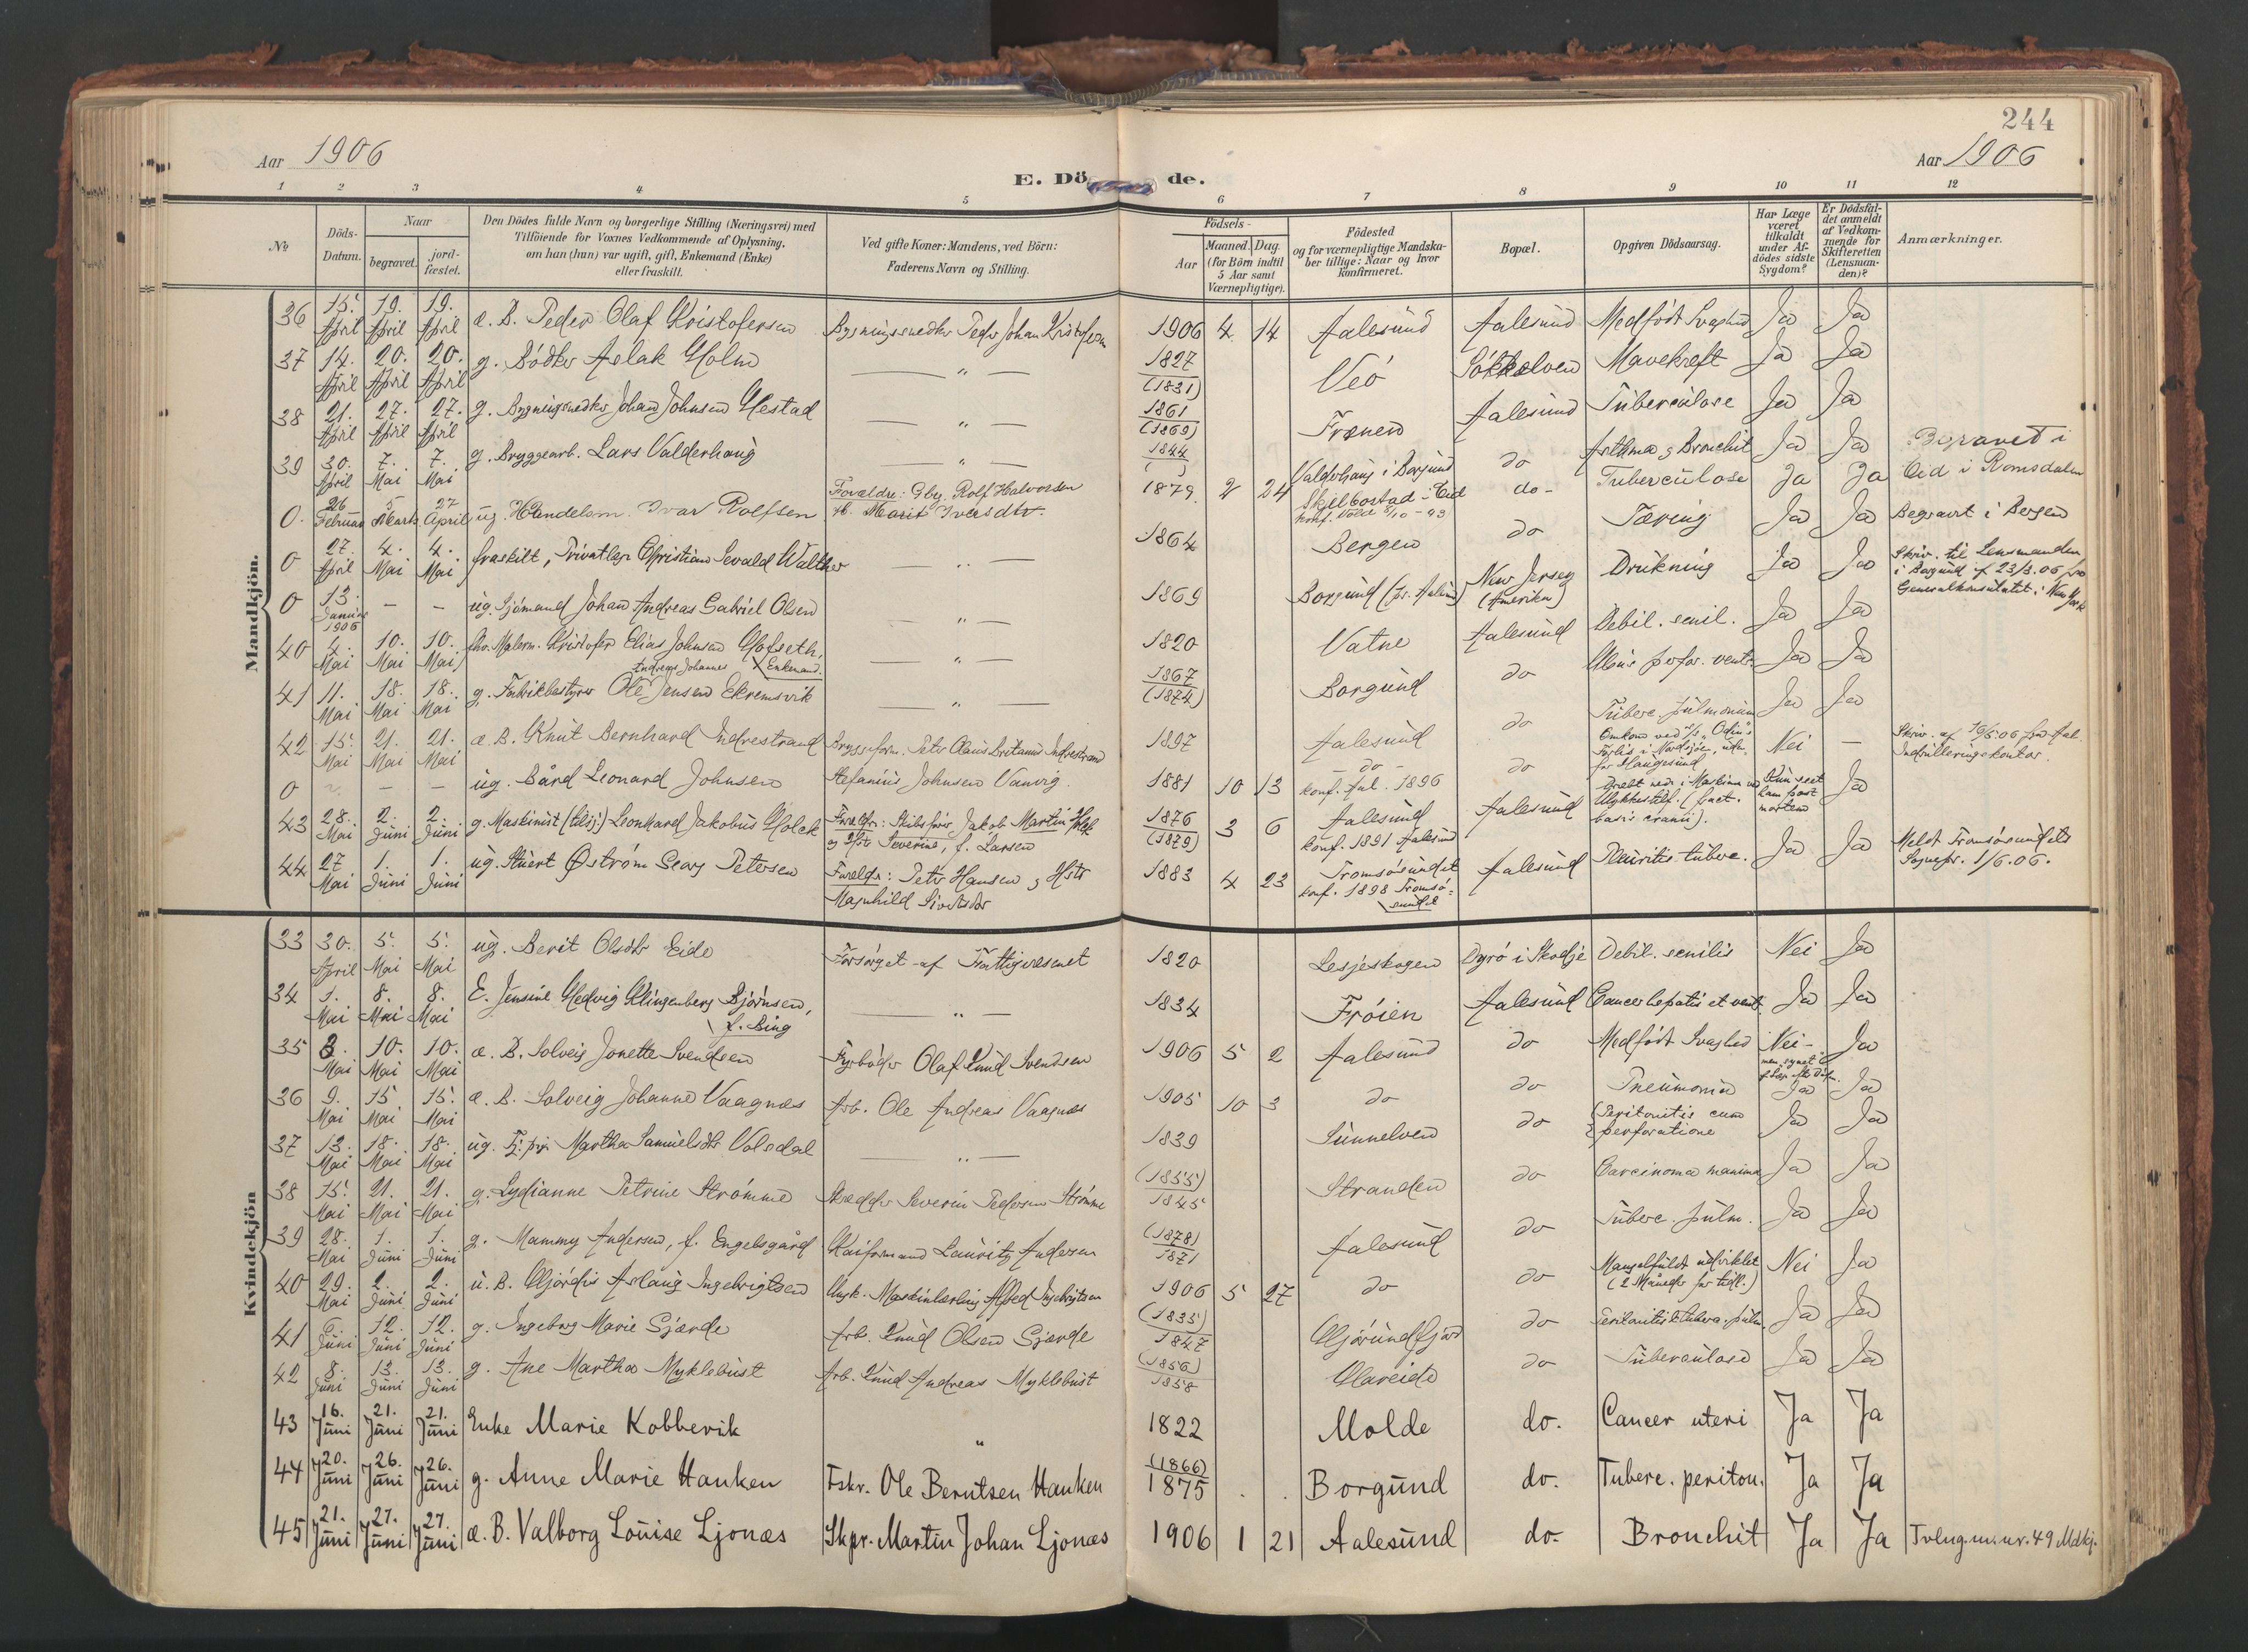 244
Aar 1906
Aar 1906
E. Dö de.
1 2 3 4 5 6 7 8 9 10 11 12
№
Döds-Datum.
Naar
begravet. jordfæstet.
Den Dödes fulde Navn og borgerlige Stilling (Næringsvei) med
Tilföiende for Voxnes Vedkommende af Oplysning,
om han (hun) var ugift, gift, Enkemand (Enke)
eller fraskilt.
Ved gifte Koner: Mandens, ved Börn:
Faderens Navn og Stilling.
Födsels-
Aar
Maaned. Dag.
(for Börn indtil
5 Aar samt
Værnepligtige).
Födested
og for værnepligtige Mandska-
ber tillige: Naar og hvor
konfirmeret.
Bopæl.
Opgiven Dödsaarsag.
Har Læge
været
tilkaldt
under Af-
dödes sidste
Sygdom?
Er Dödsfal-
det anmeldt
af Vedkom-
mende for
Skifteretten
(Lensman-
den)?
Anmærkninger.
Mandkjön.
36 15. April 19. April 19. April æ. B. Peder Olaf Kristofersen Bygningssnedker Peder Johan Kristofersen 1906 4 14 Aalesund Aalesund Medfödt Svaghed Ja Ja
37 14. April 20. April 20. April g. Bödker Aslak Holm — " — 1827 (1831) Veö Sökkelven Mavekræft Ja Ja
38 21. April 27. April 27. April g. Bygningssnedker Johan Johnsen Hestad — " — 1861 (1869) Frænen Aalesund Tuberculose Ja Ja
39 30. April 7. Mai 7. Mai g. Bryggearb. Lars Valderhaug — " — 1844 ( ) Valderhaug i Borgund do Asthma & Bronchit Ja Ja
0. 26 Februar 5 Marts 27 April ug. Handelsm. Ivar Rolfsen Forældre: Gbr. Rolf Halvorsen H. Marit Iversdtr. 1879 2 24 Skjelbostad i Eid konf. Volda 8/10 - 93 do- Tuberculose Ja Ja Begravet i Eid i Romsdalen
0 27. April 4. Mai 4. Mai fraskilt, Privatlær. Christian Sevald Walther — " — 1864 Bergen do Tæring Ja Ja Begravet i Bergen
0 13. Januar 1906 — — ug. Sjömand Johan Andreas Gabriel Olsen — " — 1869 Borgund New Jersey (Amerika) Drukning Ja Ja Skriv. til Lensmanden i Borgund af 23/3.06 fra Generalkonsulatet i New York
40 4. Mai 10. Mai 10. Mai fhv. Malerm. Kristofer Elias Johnsen Hofseth, Enkemand. — " — 1820 Vatne Aalesund Debil. senil. Ja Ja
41 11. Mai 18. Mai 18. Mai g. Fabrikbestyrer Ole Andreas Johannes Jensen Ekremsvik — " — 1867 (1874) Borgund do Ulcus perfor. ventr. Ja Ja
42 15. Mai 21. Mai 21. Mai æ. B. Knut Bernhard Indrestrand Bryggeform. Peter Olaus Britanus Indrestrand 1897 Aalesund do Tuberc. pulmonum Ja Ja
0 — — ug. Bård Leonard Johnsen Stefanius Johnsen Vanvig. 1881 10 13 — do — konf. Aal. 1896 do Omkom ved D/S "Odin"s Forlis i Nordsjöen, udenfor Haugesund Nei — Skriv. af 19/5.06 fra Aal. Indrulleringskontor.
43 28. Mai 2. Juni 2. Juni g. Maskinist (tils.) Leonhard Jakobus Holck Foreldr: Skibsförer Jakob Martin Holck og Hst Severine, f. Larsen 1876 (1879) 3 6 Aalesund konf. 1891 Aalesund Aalesund Ulykkestilf. (fract. basis cranii). Kun seet ham post mortem Ja
44 27 Mai 1. Juni 1. Juni ug. Stuert Øström Georg Petersen Foreldr: Peter Hansen & Hstr Magnhild Sivertsdtr 1883 4 23 Tromsösundet konf. 1898 Tromsösundet Aalesund Pleuritis tuberc. Ja Ja Meldt Tromsösundets Sognepr. 1/6.06.
Kvindekjön
33 30. April 5. Mai 5. Mai ug. Berit Olsdtr Eide Forsörget af Fattigvæsenet 1820 Lesjeskogen Dyrö i Skodje Debil. senilis Nei Ja
34 1. Mai 8. Mai 8. Mai E. Jensine Hedvig Klingenberg Bjørnsen, f. Bing — " — 1834 Fröien Aalesund Cancer hepatis et ventr. Ja Ja
35 3. Mai 10. Mai 10. Mai æ. B. Solveig Jonette Svendsen Fyrböder Olaf Knud Svendsen 1906 5 2 Aalesund do Medfödt Svaghed Nei- Ja
36 9. Mai 15 Mai 15. Mai æ. B. Solveig Johanne Vaagnæs Arb. Ole Andreas Vaagnæs 1905 10 3 do do Pneumonia Ja Ja
37 13. Mai 18. Mai 18. Mai ug. Martha Samuelsdtr Volsdal — " — 1839 Sunnelven do Peritonitis cum perforatione Ja Ja
38 15. Mai 21. Mai 21. Mai g. Lydianne Petrine Strömme Skrædder Severin Pedersen Strömme (1855) 1845 Stranden do Carcinoma mamma Ja Ja
39 28. Mai 1. Juni 1. Juni g. Mammy Andersen, f. Engelsgård Kaiformand Lauritz Andersen (1878) 1871 Aalesund do Tuberc. pulm. Ja Ja
40 29. Mai 2. Juni 2. Juni u. B. Hjördis Aslaug Ingebrigtsen Ungk. Maskinlærling Alfred Ingebrigtsen 1906 5 27 do do Mangelfuldt udviklet (2 Måneder for tidl.) Nei Ja
41 6. Juni 12. Juni 12. Juni g. Ingeborg Marie Gjærde Arb. Knud Olsen Gjærde (1835) 1847 Hjörundfjord do Ja Ja
42 8. Juni 13. Juni 13. Juni g. Ane Martha Myklebust Arb. Knud Andreas Myklebust (1856) 1858 Hareide do Tuberculose Ja Ja
43 16. Juni 21. Juni 21. Juni Enke Marie Kobbervik " 1822 Molde do. Cancer uteri Ja Ja
44 20. Juni 26. Juni 26. Juni g. Anne Marie Hanken Fskr. Ole Berntsen Hanken (1866) 1875 . . Borgund do. Tuberc. periton. Ja Ja
45 21. Juni 27. Juni 27. Juni æ. B. Valborg Louise Ljonæs Skpr. Martin Johan Ljonæs 1906 1 21 Aalesund do. Bronchit Ja Ja Tvling m. nr. 49 Mdkj.